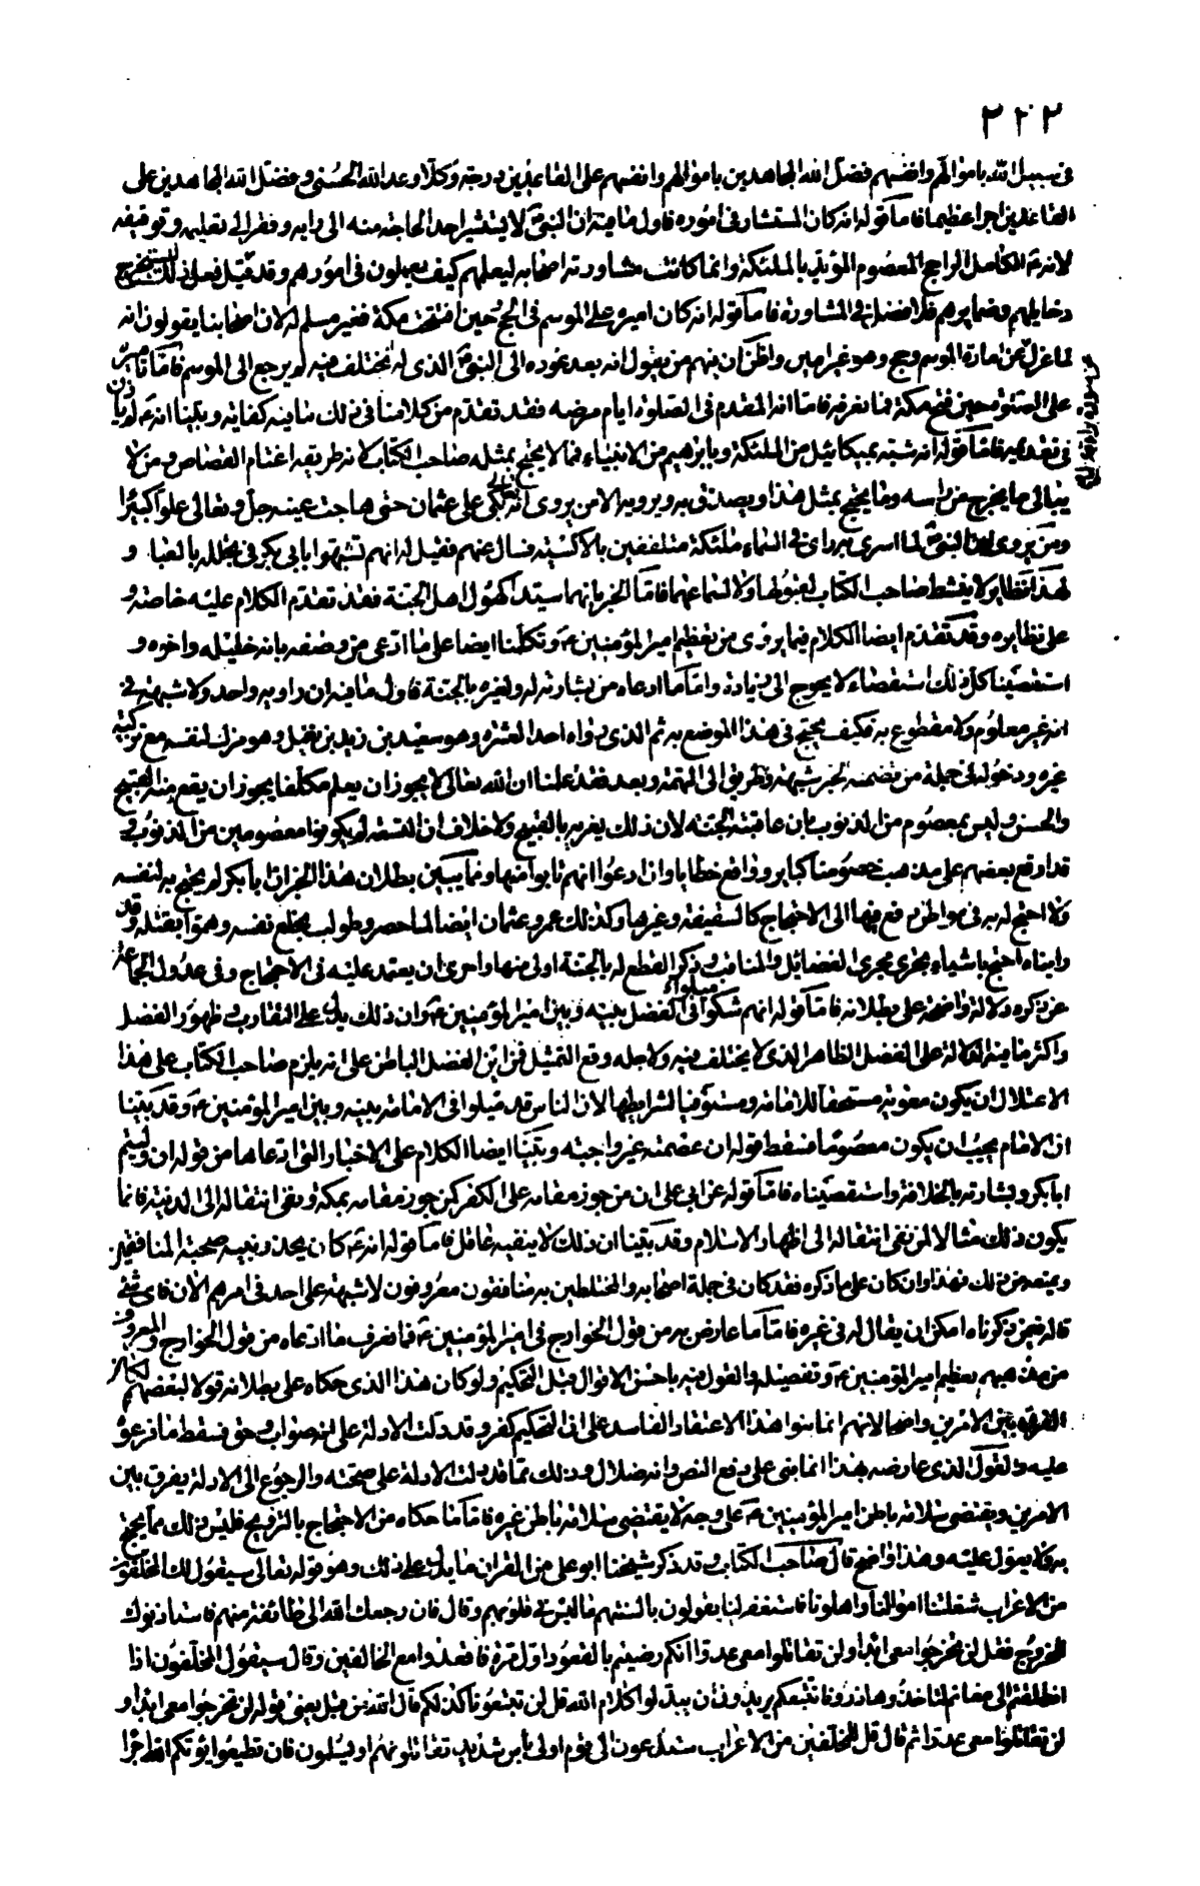 ٢٢٢
في سبيل الله باموالهم وانفسهم فضل الله المجاهدين باموالهم وانفسهم على القاعدين درجة وكلا وعد الله الحسنى وفضل الله المجاهدين على
القاعدين اجرا عظيما فاما قوله انه كان المستشار في اموره فاول ما فيه ان النبي ص لا يستشير احدا لحاجة منه الى رايه وفقر الى تعليمه وتوقيفه
لانه ع الكامل الراجح المعصوم المؤيد بالملئكة وانما كانت مشاورته اصحابه ليعلمهم كيف يعملون في امورهم وقد قيل فعل ذلك ليستخرج
دخايلهم وضمايرهم فلا فضل في المشاورة فاما قوله انه كان اميره على الموسم في الحج حين افتتحت مكة فغير مسلم له لان اصحابنا يقولون انه
لما عزل عن امارة الموسم وحج وهو غير امير واظن ان منهم من يقول انه بعد عوده الى النبي ص الذي له تختلف فيه لم يرجع الى الموسم فاما تاميره
على الصلوة حين فتح مكة فما نعرفه فاما انه المقدم في الصلوة ايام مرضه فقد تقدم من كلامنا في ذلك ما فيه كفاية وبينا انه ع لم ياذن
في تقديمه فاما قوله انه شبه بميكائيل من الملئكة وبابرهيم من الانبياء فما لا يحتج بمثله صاحب الكتاب لانه طريقه اغتنام القصاص ومن لا
يبالي ما يخرج من راسه وما يحتج بمثل هذا ويصدق به ويرويه الا من يروي انه تعالى بكى على عثمان حتى هاجت عينه جل وتعالى علوا كبيرا
ومن يروي ان النبي ص لما اسري به راى في السماء ملئكة متلففين بالاكسية فسال عنهم فقيل له انهم تشبهوا بابي بكر في تخلله بالعبا و
لهذا نظاير لا ينشط صاحب الكتاب لقبولها ولا لسماعها فاما الخبر بانهما سيدا كهول اهل الجنة فقد تقدم الكلام عليه خاصة و
على نظايره وقد تقدم ايضا الكلام فيما يروى من تعظيم امير المؤمنين ع وتكلمنا ايضا على ما ادعى من وصفه بانه خليله واخوه و
استقصينا كل ذلك استقصاء لا يحوج الى زيادة واما ما ادعاه من بشارته له ولغيره بالجنة فاول ما فيه ان راويه واحد ولا شبهة في
انه غير معلوم ولا مقطوع به فكيف يحتج في هذا الموضع به ثم الذي رواه احد العشرة وهو سعيد بن زيد بن نفيل وهو مزك لنفسه مع تزكية
غيره ودخوله في جملة من تضمنه الخبر شبهة وطريق الى التهمة وبعد فقد علمنا ان الله تعالى لا يجوز ان يعلم مكلفا يجوز ان يقع منه القبيح
والحسن وليس بمعصوم من الذنوب بان عاقبته الجنة لان ذلك يغريه بالقبيح ولا خلاف ان التسعة لم يكونوا معصومين من الذنوب و
قد اوقع بعضهم على مذهب خصومنا كباير وواقع خطايا وان ادعوا انهم تابوا منها ومما يبين بطلان هذا الخبر ان ابا بكر لم يحتج به لنفسه
ولا احتج له به في مواطن دفع فيها الى الاحتجاج كالسقيفة وغيرها وكذلك عمر وعثمان ايضا لما حصر وطولب بخلع نفسه وهموا بقتله وقد
راينا احتج باشياء تجري مجرى الفضائل والمناقب وذكر القطع له بالجنة اولى منها واحرى ان يعتمد عليه في الاحتجاج وفي عدول الجماعة
عن ذكره دلالة واضحة على بطلانه فاما قوله انهم شكوا في الفضل بينه وبين امير المؤمنين ع وان ذلك يدل على التقارب وظهور الفضل
واكثر ما فيه الدلالة على الفضل الظاهر الذي لا يختلف فيه ولاجله وقع التمثيل فمن اين الفضل الباطن على انه يلزم صاحب الكتاب على هذا
الاعتلال ان يكون معوية مستحقا للامامة ومستوفيا لشرايطها لان الناس قد ميلوا في الامامة بينه وبين امير المؤمنين ع وقد بينا
ان الامام يجب ان يكون معصوما فسقط قوله ان عصمته غير واجبة وبينا ايضا الكلام على الاخبار التي ادعاها من قوله ان وليتم
ابا بكر وبشارته بالخلافة واستقصيناه فاما قوله عن ابي علي ان من جوز مقامه على الكفر كمن جوز مقامه بمكة ونفى انتقاله الى المدينة فانما
يكون ذلك مثالا لمن نفى انتقاله الى اظهار الاسلام وقد بينا ان ذلك لا ينفيه عاقل فاما قوله انه ع كان يحذر نبيه صحبة المنافقين
ويمنعه من ذلك فهذا وان كان على ما ذكره فقد كان في جملة اصحابه والمختلطين به منافقون معروفون لا شبهة على احد في امرهم الان فاي شئ
قاله فيمن ذكرناه امكن ان يقال له في غيره فاما ما عارض به من قول الخوارج في امير المؤمنين ع فما نعرف ما ادعاه من قول الخوارج والمعروف
من مذهبهم تعظيم امير المؤمنين ع وتفضيله والقول فيه باحسن الاقوال قبل التحكيم ولو كان هذا الذي حكاه على بطلانه قولا لبعضهم لكان
الفرق بين الامرين واضحا لانهم انما بنوا هذا الاعتقاد الفاسد على ان التحكيم كفر وقد دلت الادلة على انه صواب وحق فسقط ما فرعوه
عليه والقول الذي عارضه بهذا انما بنى على دفع النص وانه ضلال وذلك مما قد دلت الادلة على صحته والرجوع الى الادلة يفرق بين
الامرين ويقتضي سلامة باطن امير المؤمنين ع على وجه لا يقتضي سلامة باطن غيره فاما ما حكاه من الاحتجاج بالتزويج فليس ذلك مما يحتج
به ولا يعول عليه وهذا واضح قال صاحب الكتاب وقد ذكر شيخنا ابو علي من القران ما يدل على ذلك وهو قوله تعالى سيقول لك المخلفون
من الاعراب شغلتنا اموالنا واهلونا فاستغفر لنا يقولون بالسنتهم ما ليس في قلوبهم وقال فان رجعك الله الى طائفة منهم فاستاذنوك
للخروج فقل لن تخرجوا معي ابدا ولن تقاتلوا معي عدوا انكم رضيتم بالقعود اول مرة فاقعدوا مع الخالفين وقال سيقول المخلفون اذا
انطلقتم الى مغانم لتاخذوها ذرونا نتبعكم يريدون ان يبدلوا كلام الله قل لن تتبعونا كذلكم قال الله من قبل يعني قوله لن تخرجوا معي ابدا و
لن تقاتلوا معي عدوا ثم قال قل للمخلفين من الاعراب ستدعون الى قوم اولي باس شديد تقاتلونهم او يسلمون فان تطيعوا يؤتكم الله اجرا